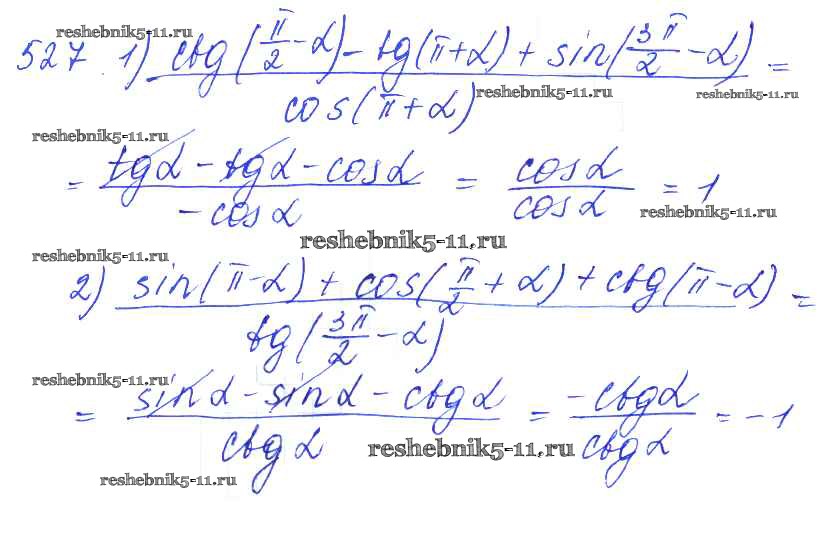 reshebnik5-11.ru
527 1) (ctg(π/2 - α) - tg(π+α) + sin(3π/2 - α)) / cos(π+α) =
reshebnik5-11.ru reshebnik5-11.ru
reshebnik5-11.ru
= (tgα - tgα - cosα) / (-cosα) = cosα / cosα = 1
reshebnik5-11.ru
reshebnik5-11.ru
reshebnik5-11.ru
2) (sin(π-α) + cos(π/2 + α) + ctg(π-α)) / tg(3π/2 - α) =
reshebnik5-11.ru
= (sinα - sinα - ctgα) / ctgα = -ctgα / ctgα = -1
reshebnik5-11.ru
reshebnik5-11.ru